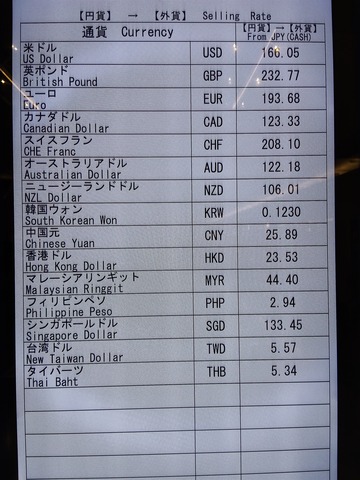 【円貨】 → 【外貨】 Selling Rate
通貨 Currency 【円貨】→【外貨】 From JPY(CASH)
米ドル
US Dollar USD 166.05
英ポンド
British Pound GBP 232.77
ユーロ
Euro EUR 193.68
カナダドル
Canadian Dollar CAD 123.33
スイスフラン
CHE Franc CHF 208.10
オーストラリアドル
Australian Dollar AUD 122.18
ニュージーランドドル
NZL Dollar NZD 106.01
韓国ウォン
South Korean Won KRW 0.1230
中国元
Chinese Yuan CNY 25.89
香港ドル
Hong Kong Dollar HKD 23.53
マレーシアリンギット
Malaysian Ringgit MYR 44.40
フィリピンペソ
Philippine Peso PHP 2.94
シンガポールドル
Singapore Dollar SGD 133.45
台湾ドル
New Taiwan Dollar TWD 5.57
タイバーツ
Thai Baht THB 5.34